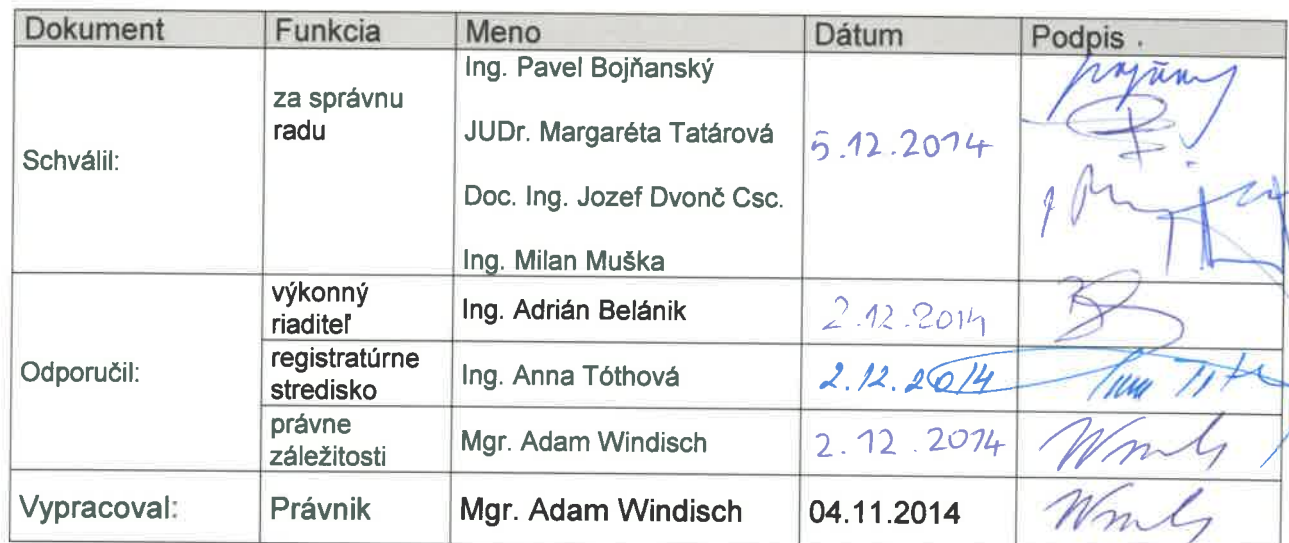 Dokument Funkcia Meno Dátum Podpis
Schválil: za správnu radu Ing. Pavel Bojňanský
JUDr. Margaréta Tatárová 5.12.2014
Doc. Ing. Jozef Dvonč Csc.
Ing. Milan Muška
Odporučil: výkonný riaditeľ Ing. Adrián Belánik 2.12.2014
registratúrne stredisko Ing. Anna Tóthová 2.12.2014
právne záležitosti Mgr. Adam Windisch 2.12.2014
Vypracoval: Právnik Mgr. Adam Windisch 04.11.2014